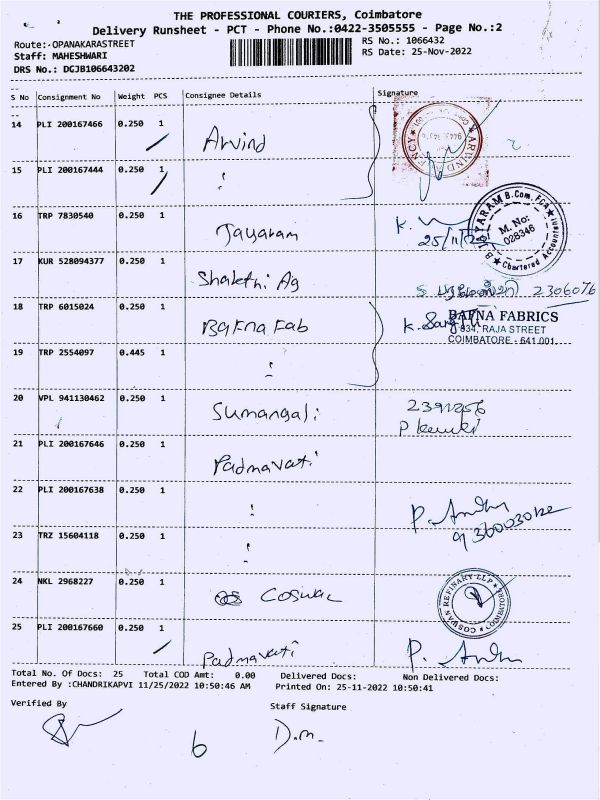 THE PROFESSIONAL COURIERS, Coimbatore
Delivery Runsheet - PCT - Phone No.:0422-3505555 - Page No.:2
Route:-OPANAKARASTREET
RS No.: 1066432
Staff: MAHESHWARI
RS Date: 25-Nov-2022
DRS No.: DGJB106643202
S No Consignment No Weight PCS Consignee Details Signature
14 PLI 200167466 0.250 1 Arvind
15 PLI 200167444 0.250 1 "
16 TRP 7830540 0.250 1 Jayaram K. 25/11/22
B JAYARAM B.Com, FCA
M. No: 028346
Chartered Accountant
17 KUR 528094377 0.250 1 Shakthi Ag 2306076
18 TRP 6015024 0.250 1 Bafna Fab
BAFNA FABRICS
834, RAJA STREET
COIMBATORE - 641 001.
19 TRP 2554097 0.445 1 "
20 VPL 941130462 0.250 1 Sumangali 2391256
21 PLI 200167646 0.250 1 Padmavati
22 PLI 200167638 0.250 1 "
23 TRZ 15604118 0.250 1 "
24 NKL 2968227 0.250 1 Coswan
COSWAN REFINARY LLP
COIMBATORE
25 PLI 200167660 0.250 1 Padmavati
Total No. Of Docs: 25 Total COD Amt: 0.00 Delivered Docs: Non Delivered Docs:
Entered By :CHANDRIKAPVI 11/25/2022 10:50:46 AM Printed On: 25-11-2022 10:50:41
Verified By
Staff Signature
6
D.m.